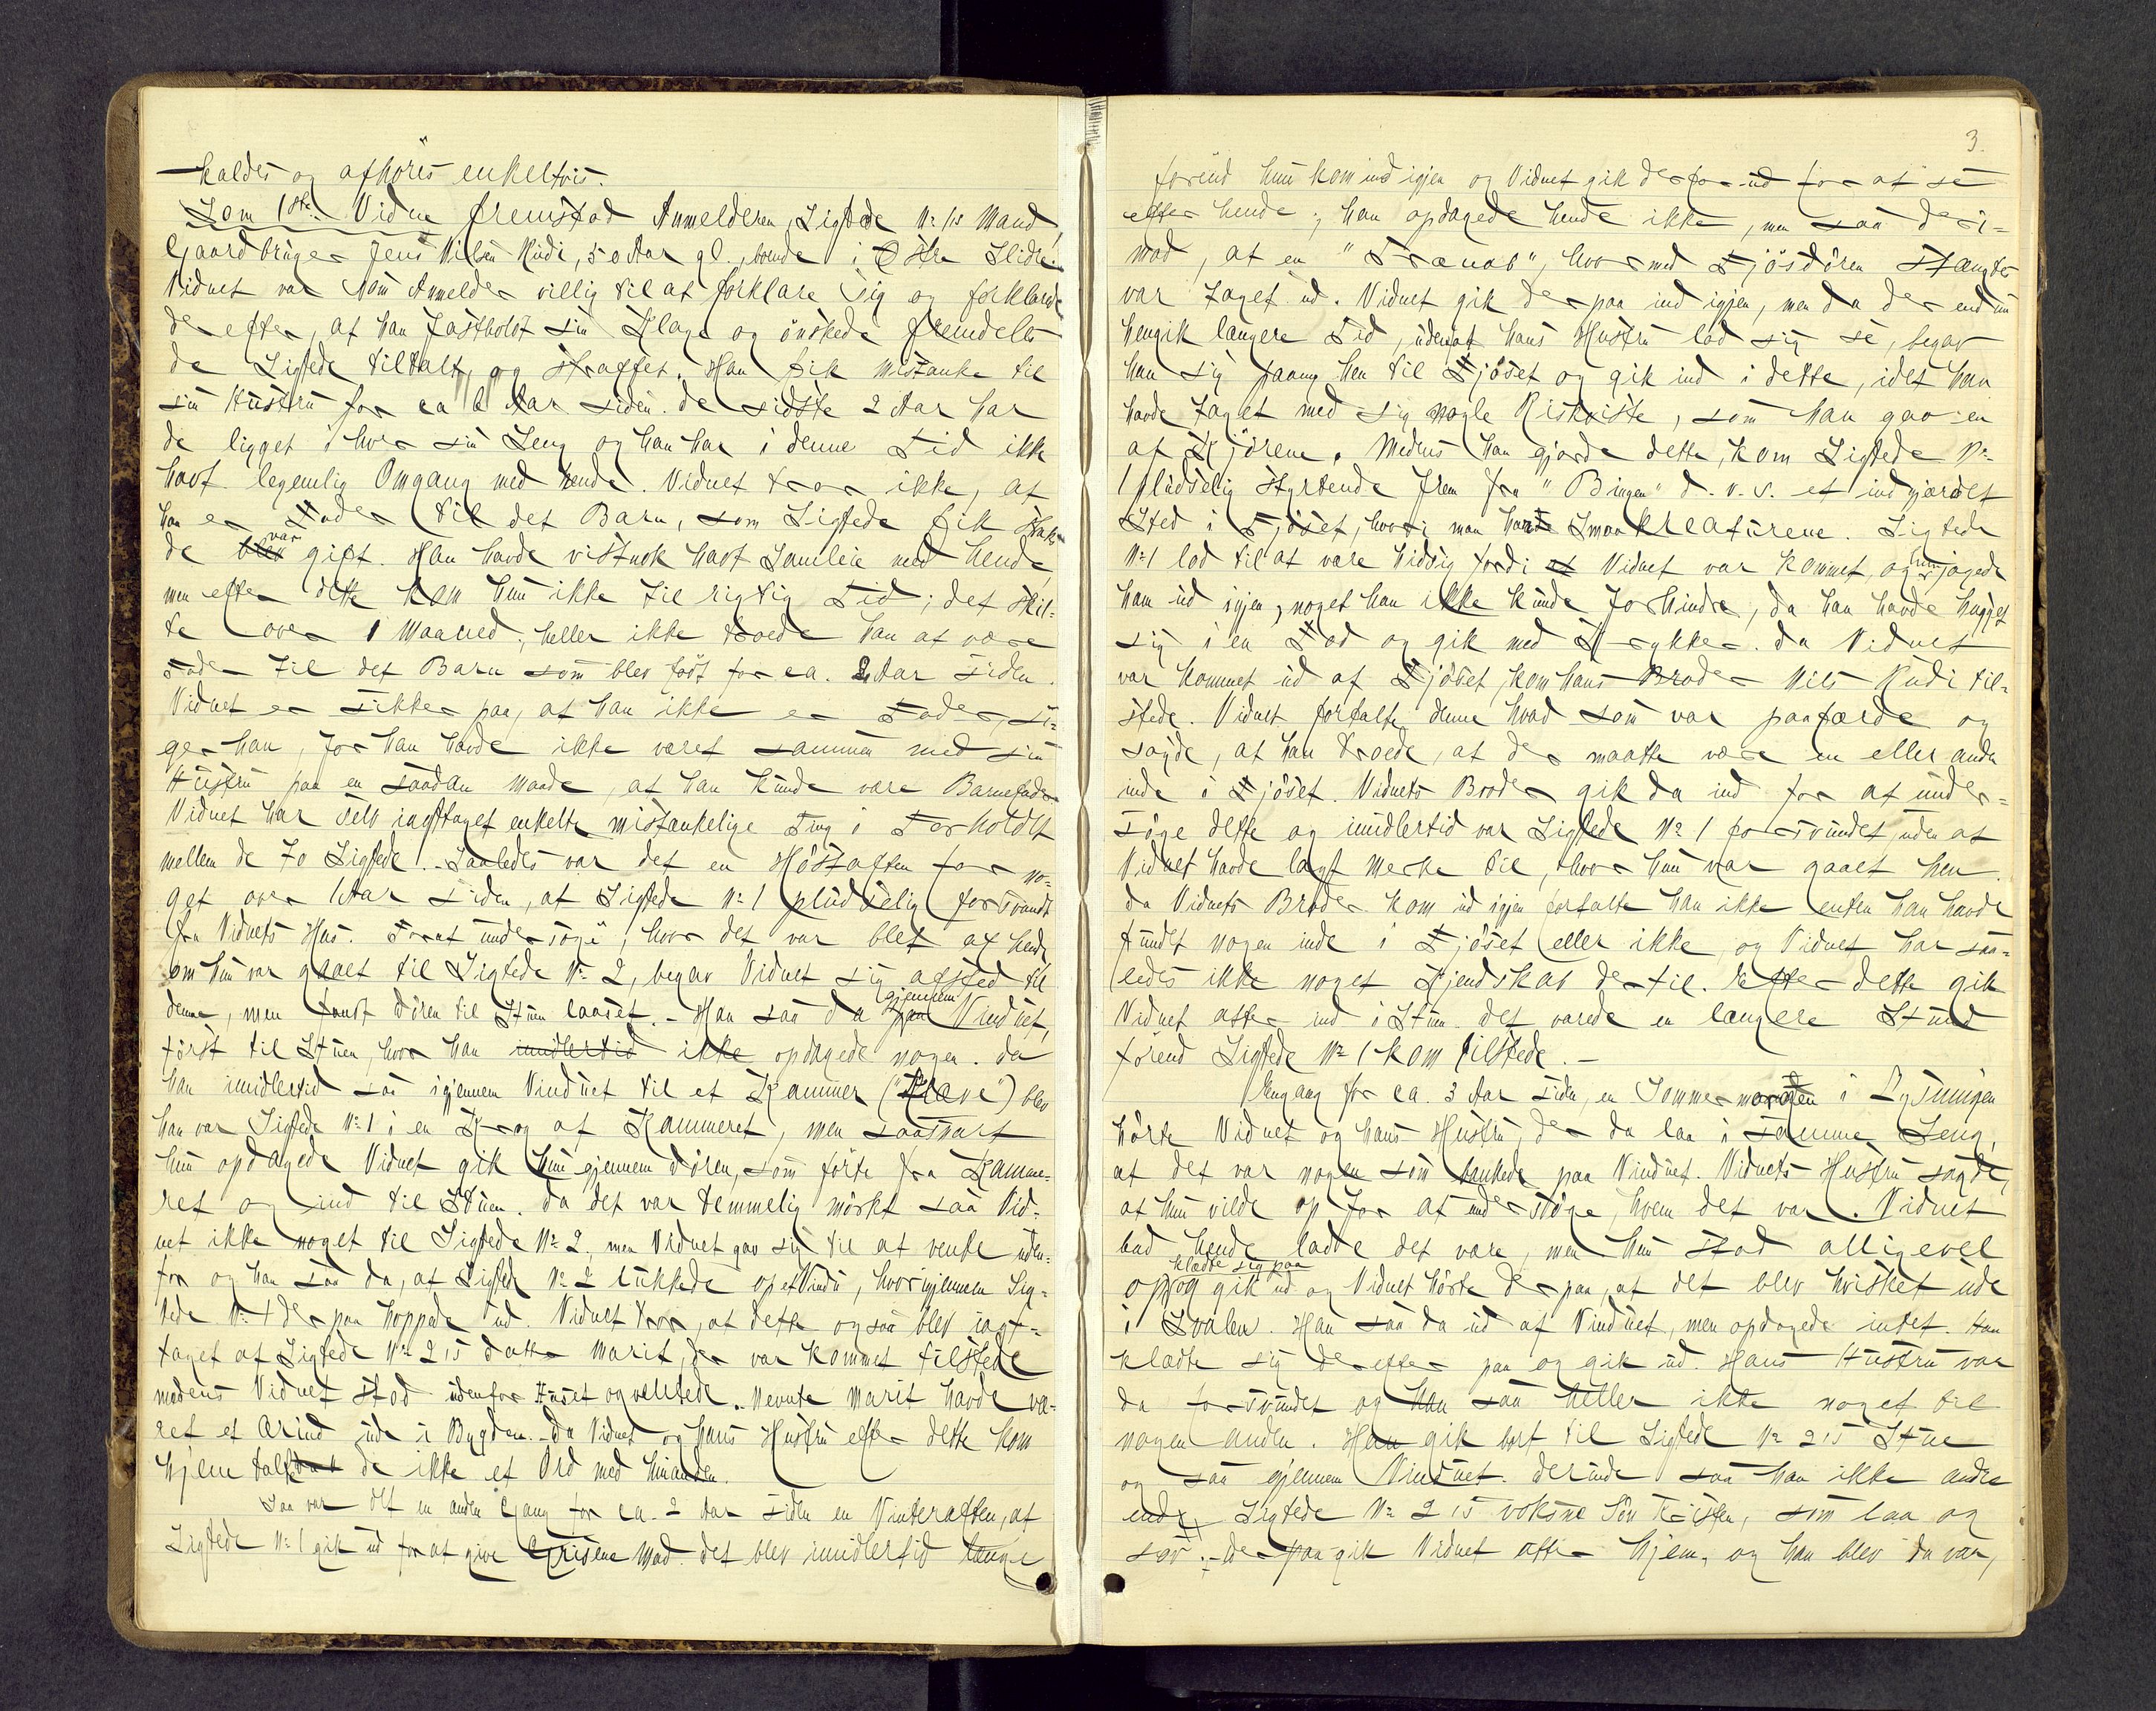 kaldes og afhøres enkeltvis.
Som 1ste Vidne fremstod Anmelderen, Sigtede No 1's Mand,
Gaardbruger Jens Nilsen Rudi, 50 Aar gl., boende i Østre Slidre.
Vidnet var som Anmelder villig til at forklare sig og forklarede
derefter, at han fastholdt sin Klage og ønskede fremdeles
de Sigtede tiltalt og straffet. Han fik Mistanke til
sin Hustru for ca 6 Aar siden. De sidste 2 Aar har
de ligget i hver sin Seng og han har i denne Tid ikke
havt legemlig Omgang med hende. Vidnet tror ikke, at
han er Fader til det Barn, som Sigtede fik straks
de blev var gift. Han havde vistnok havt Samleie med hende,
men efter dette kom hun ikke til rigtig Tid; det skil-
te over 1 Maaned; heller ikke troede han at være
Fader til det Barn som blev født for ca. 2 Aar siden.
Vidnet er sikker paa, at han ikke er Fader, si-
ger han, for han havde ikke været sammen med sin
Hustru paa en saadan Maade, at han kunde være Barnefader.
Vidnet har selv iagttaget enkelte mistænkelige Ting i Forholdet
mellem de to Sigtede. - Saaledes var det en Høstaften for no-
get over 1 Aar siden, at Sigtede No 1 pludselig forsvandt
fra Vidnets Hus. Forat undersøge, hvor det var blet af hende
om hun var gaaet til Sigtede No 2, begav Vidnet sig afsted til
denne, men fandt Døren til Stuen laaset. - Han saa da gjennem paa Vinduet,
først til Stuen, hvor han imidlertid ikke opdagede nogen. Da
han imidlertid saa igjennem Vinduet til et Kammer ("Kleve") blev
han var Sigtede No 1 i en Krog af Kammeret, men saasnart
hun opdagede Vidnet gik hun gjennem Døren, som førte fra Kamme-
ret og ind til Stuen. Da det var temmelig mørkt saa Vid-
net ikke noget til Sigtede No 2, men Vidnet gav sig til at vente uden-
for og han saa da, at Sigtede No 2 lukkede op et Vindu, hvorigjennem Sig-
tede No 1 derpaa hoppede ud. Vidnet tror, at dette ogsaa blev iagt-
taget af Sigtede No 2's Datter Marit, der var kommet tilstede
medens Vidnet stod udenfor Huset og ventede. Nevnte Marit havde væ-
ret et Ærind ude i Bygden. - Da Vidnet og hans Hustru efter dette kom
hjem talte de ikke et Ord med hinanden.
Saa var det en anden Gang for ca. 2 Aar siden en Vinteraften, at
Sigtede No 1 gik ud for at give Grisene Mad. Det blev imidlertid længe
3.
førend hun kom ind igjen og Vidnet gik derfor ud for at se
efter hende; han opdagede hende ikke, men saa deri-
mod, at en "Træuab", hvormed Fjøsdøren stængtes
var taget ud. Vidnet gik derpaa ind igjen, men da der endnu
hengik længere Tid, uden at hans Hustru lod sig se, begav
han sig paany hen til Fjøset og gik ind i dette, idet han
havde taget med sig nogle Riskviste, som han gav en
af Kjørene. Medens han gjorde dette, kom Sigtede No
1 pludselig styrtende frem fra "Bingen" d. v. s. et indgjærdet
Sted i Fjøset, hvori man havde Smaakreaturene. Sigtede
No 1 lod til at være hidsig fordi at Vidnet var kommet, og hun jagede
ham ud igjen, noget han ikke kunde forhindre, da han havde hugget
sig i en Fod og gik med Krykker. Da Vidnet
var kommet ud af Fjøset, kom hans Broder Nils Rudi til-
stede. Vidnet fortalte denne hvad som var paafærde og
sagde, at han troede, at der maatte være en eller anden
inde i Fjøset. Vidnets Broder gik da ind for at under-
søge dette og imidlertid var Sigtede No 1 forsvundet, uden at
Vidnet havde lagt Merke til, hvor hun var gaaet hen.
Da Vidnets Broder kom ud igjen fortalte han ikke enten han havde
fundet nogen inde i Fjøset eller ikke, og Vidnet har saa-
ledes ikke noget Kjendskab dertil. Efter dette gik
Vidnet atter ind i Stuen. Det varede en længere Stund
førend Sigtede No 1 kom tilstede. -
Engang for ca. 3 Aar siden, en Sommermorgen i Lysningen
hørte Vidnet og hans Hustru, der da laa i samme Seng,
at det var nogen som bankede paa Vinduet. Vidnets Hustru sagde,
at hun vilde op for at undersøge, hvem det var. Vidnet
bad hende lade det være, men hun stod alligevel
op klædte sig paa og gik ud og Vidnet hørte derpaa, at det blev hvisket ude
i Svalen. Han saa da ud af Vinduet, men opdagede intet. Han
klædte sig derefter paa og gik ud. Hans Hustru var
da forsvundet og han saa heller ikke noget til
nogen anden. Han gik bort til Sigtede No 2's Stue
og saa gjennem Vinduet. Derinde saa han ikke andre
end Sigtede No 2's voksne Søn Kristen, som laa og
sov. - Derpaa gik Vidnet atter hjem, og han blev da var,